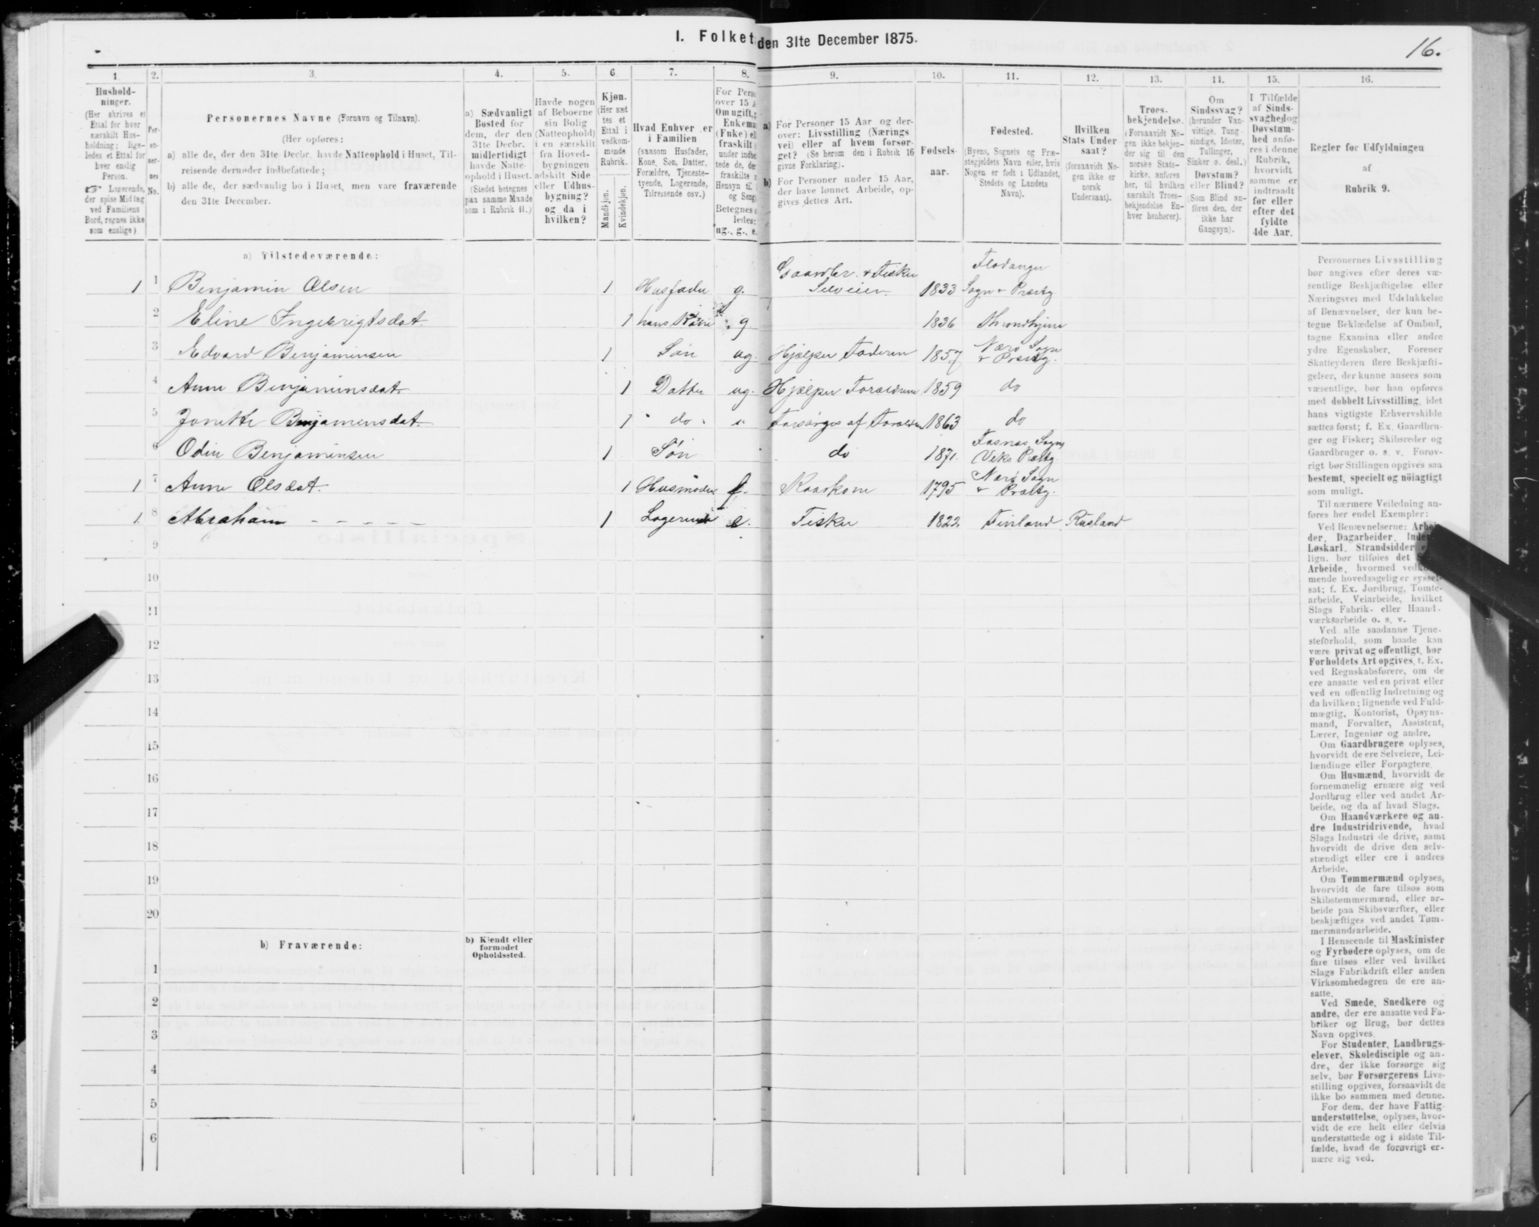 I. Folket den 31te December 1875.
16.
1.
2.
3.
4.
5.
6.
7.
8.
9.
10.
11.
12.
13.
14.
15.
16.
Hushold-
ninger.
(Her skrives et
Ettal for hver
særskilt Hus-
holdning; lige-
ledes et Ettal for
hver enslig
Person.
Logerende,
der spise Middag
ved Familiens
Bord, regnes ikke
som enslige)
Personernes Navne (Fornavn og Tilnavn).
(Her opføres:
a) alle de, der den 31te Decbr. havde Natteophold i Huset, Til-
reisende derunder indbefattede;
b) alle de, der sædvanlig bo i Huset, men vare fraværende
den 31te December.
a) Sædvanligt
Bosted for
dem, der den
31te Decbr.
midlertidigt
havde Natte-
ophold i Huset.
(Stedet betegnes
paa samme Maade
som i Rubrik 11.)
Havde nogen
af Beboerne
sin Bolig
(Natteophold)
i en særskilt
fra Hoved-
bygningen
adskilt Side
eller Udhus-
bygning?
og da i
hvilken?
Kjøn.
(Her sæt
tes et
Ettal i
vedkom-
mende
Rubrik.
Mandkjøn.
Kvindekjøn.
Hvad Enhver er
i Familien
(saasom Husfader,
Kone, Søn, Datter,
Forældre, Tjeneste-
tyende, Logerende,
Tilreisende osv.)
a) For Personer 15 Aar og der-
over: Livsstilling (Nærings
vei) eller af hvem forsør-
get? (Se herom den i Rubrik 16
givne Forklaring).
b) For Personer under 15 Aar,
der have lønnet Arbeide, op-
gives dettes Art.
Fødsels-
aar.
Fødested.
(Byens, Sognets og Præ-
stegjeldets Navn eller, hvis
Nogen er født i Udlandet,
Stedets og Landets
Navn).
Hvilken
Stats Under
saat?
(forsaavidt No-
gen ikke er
norsk
Undersaat).
Troes-
bekjendelse.
(Forsaavidt No-
gen ikke bekjen-
der sig til den
norske Stats-
kirke, anføres
her, til hvilken
særskilt Troes-
bekjendelse En-
hver henhører).
Om
Sindssvag?
(herunder Van-
vittige, Tung-
sindige, Idioter,
Tullinger,
Sinker o. desl.)
Døvstum?
eller Blind?
(Som Blind an-
føres den, der
ikke har
Gangsyn).
I Tilfælde
af Sinds-
svaghed og
Døvstum-
hed anfø-
res i denne
Rubrik,
hvorvidt
samme er
indtraadt
før eller
efter det
fyldte
4de Aar.
Regler før Udfyldningen
af
Rubrik 9.
a) Tilstedeværende:
1 1 Benjamin Olsen 1 Husfader g. Gaardbr. & Fisker Selveier 1833 Flodanger Sogn & Præstg
2 Eline Ingebrigtsdat. 1 hans Kone g. 1836 Throndhjem
3 Edvard Benjaminsen 1 Søn ug. Hjælper Faderen 1857 Nærø Sogn & Præstg.
4 Anne Benjaminsdat. 1 Datter ug. Hjælper Forældrene 1859 do
5 Jonette Benjaminsdat. 1 do Forsørges af Forældre 1863 do
6 Odin Benjaminsen 1 Søn do 1871 Fosnæs Sogn
1 7 Anne Olsdat. 1 Husmoder f. Kaarkone 1795 Nærø Sogn & Præstg.
1 8 Abraham - - - - - 1 Logerende e. Fisker 1822 Finland Rusland
9
10
11
12
13
14
15
16
17
18
19
20
b) Fraværende:
b) Kjendt eller
formodet
Opholdssted.
1
2
3
4
5
6
Personernes Livsstilling
bør angives efter deres væ-
sentlige Beskjæftigelse eller
Næringsvei med Udelukkelse
af Benævnelser, der kun be-
tegne Beklædelse af Ombud,
tagne Examina eller andre
ydre Egenskaber. Forener
Skatteyderen flere Beskjæfti-
gelser, der kunne ansees som
væsentlige, bør han opføres
med dobbelt Livsstilling, idet
hans vigtigste Erhvervskilde
sættes først; f. Ex. Gaardbru-
ger og Fisker; Skibsreder og
Gaardbruger o. s. v. Forøv-
rigt bør Stillingen opgives saa
bestemt, specielt og nøiagtigt
som muligt.
Til nærmere Veiledning an-
føres her endel Exempler:
Ved Benævnelserne: Arbei-
der, Dagarbeider,
Løskarl, Strandsidder
lign. bør tilføies det
Arbeide, hvormed
mende hovedsagelig er syssel-
sat; f. Ex. Jordbrug, Tomte-
arbeide, Veiarbeide, hvilket
Slags Fabrik- eller Haand-
værksarbeide o. s. v.
Ved alle saadanne Tjene-
steforhold, som baade kan
være privat og offentligt, bør
Forholdets Art opgives, f. Ex.
ved Regnskabsførere, om de
ere ansatte ved en privat eller
ved en offentlig Indretning og
da hvilken; lignende ved Fuld-
mægtig, Kontorist, Opsyns-
mand, Forvalter, Assistent,
Lærer, Ingeniør og andre.
Om Gaardbrugere oplyses,
hvorvidt de ere Selveiere, Lei-
lændinge eller Forpagtere.
Om Husmænd, hvorvidt de
fornemmelig ernære sig ved
Jordbrug eller ved andet Ar-
beide, og da af hvad Slags.
Om Haandværkere og an-
dre Industridrivende, hvad
Slags Industri de drive, samt
hvorvidt de drive den selv-
stændigt eller ere i andres
Arbeide.
Om Tømmermænd oplyses,
hvorvidt de fare tilsøs som
Skibstømmermænd, eller ar-
beide paa Skibsværfter, eller
beskjæftiges ved andet Tøm-
mermandsarbeide.
I Henseende til Maskinister
og Fyrbødere oplyses, om de
fare tilsøs eller ved hvilket
Slags Fabrikdrift eller anden
Virksomhedsgren de ere an-
satte.
Ved Smede, Snedkere og
andre, der ere ansatte ved Fa-
briker og Brug, bør dettes
Navn opgives.
For Studenter, Landbrugs-
elever, Skoledisciple og an-
dre, der ikke forsørge sig
selv, bør Forsørgerens Livs-
stilling opgives, forsaavidt de
ikke bo sammen med denne.
For dem, der have Fattig-
understøttelse, oplyses, hvor-
vidt de ere helt eller delvis
understøttede og i sidste Til-
fælde, hvad de forøvrigt er-
nære sig ved.